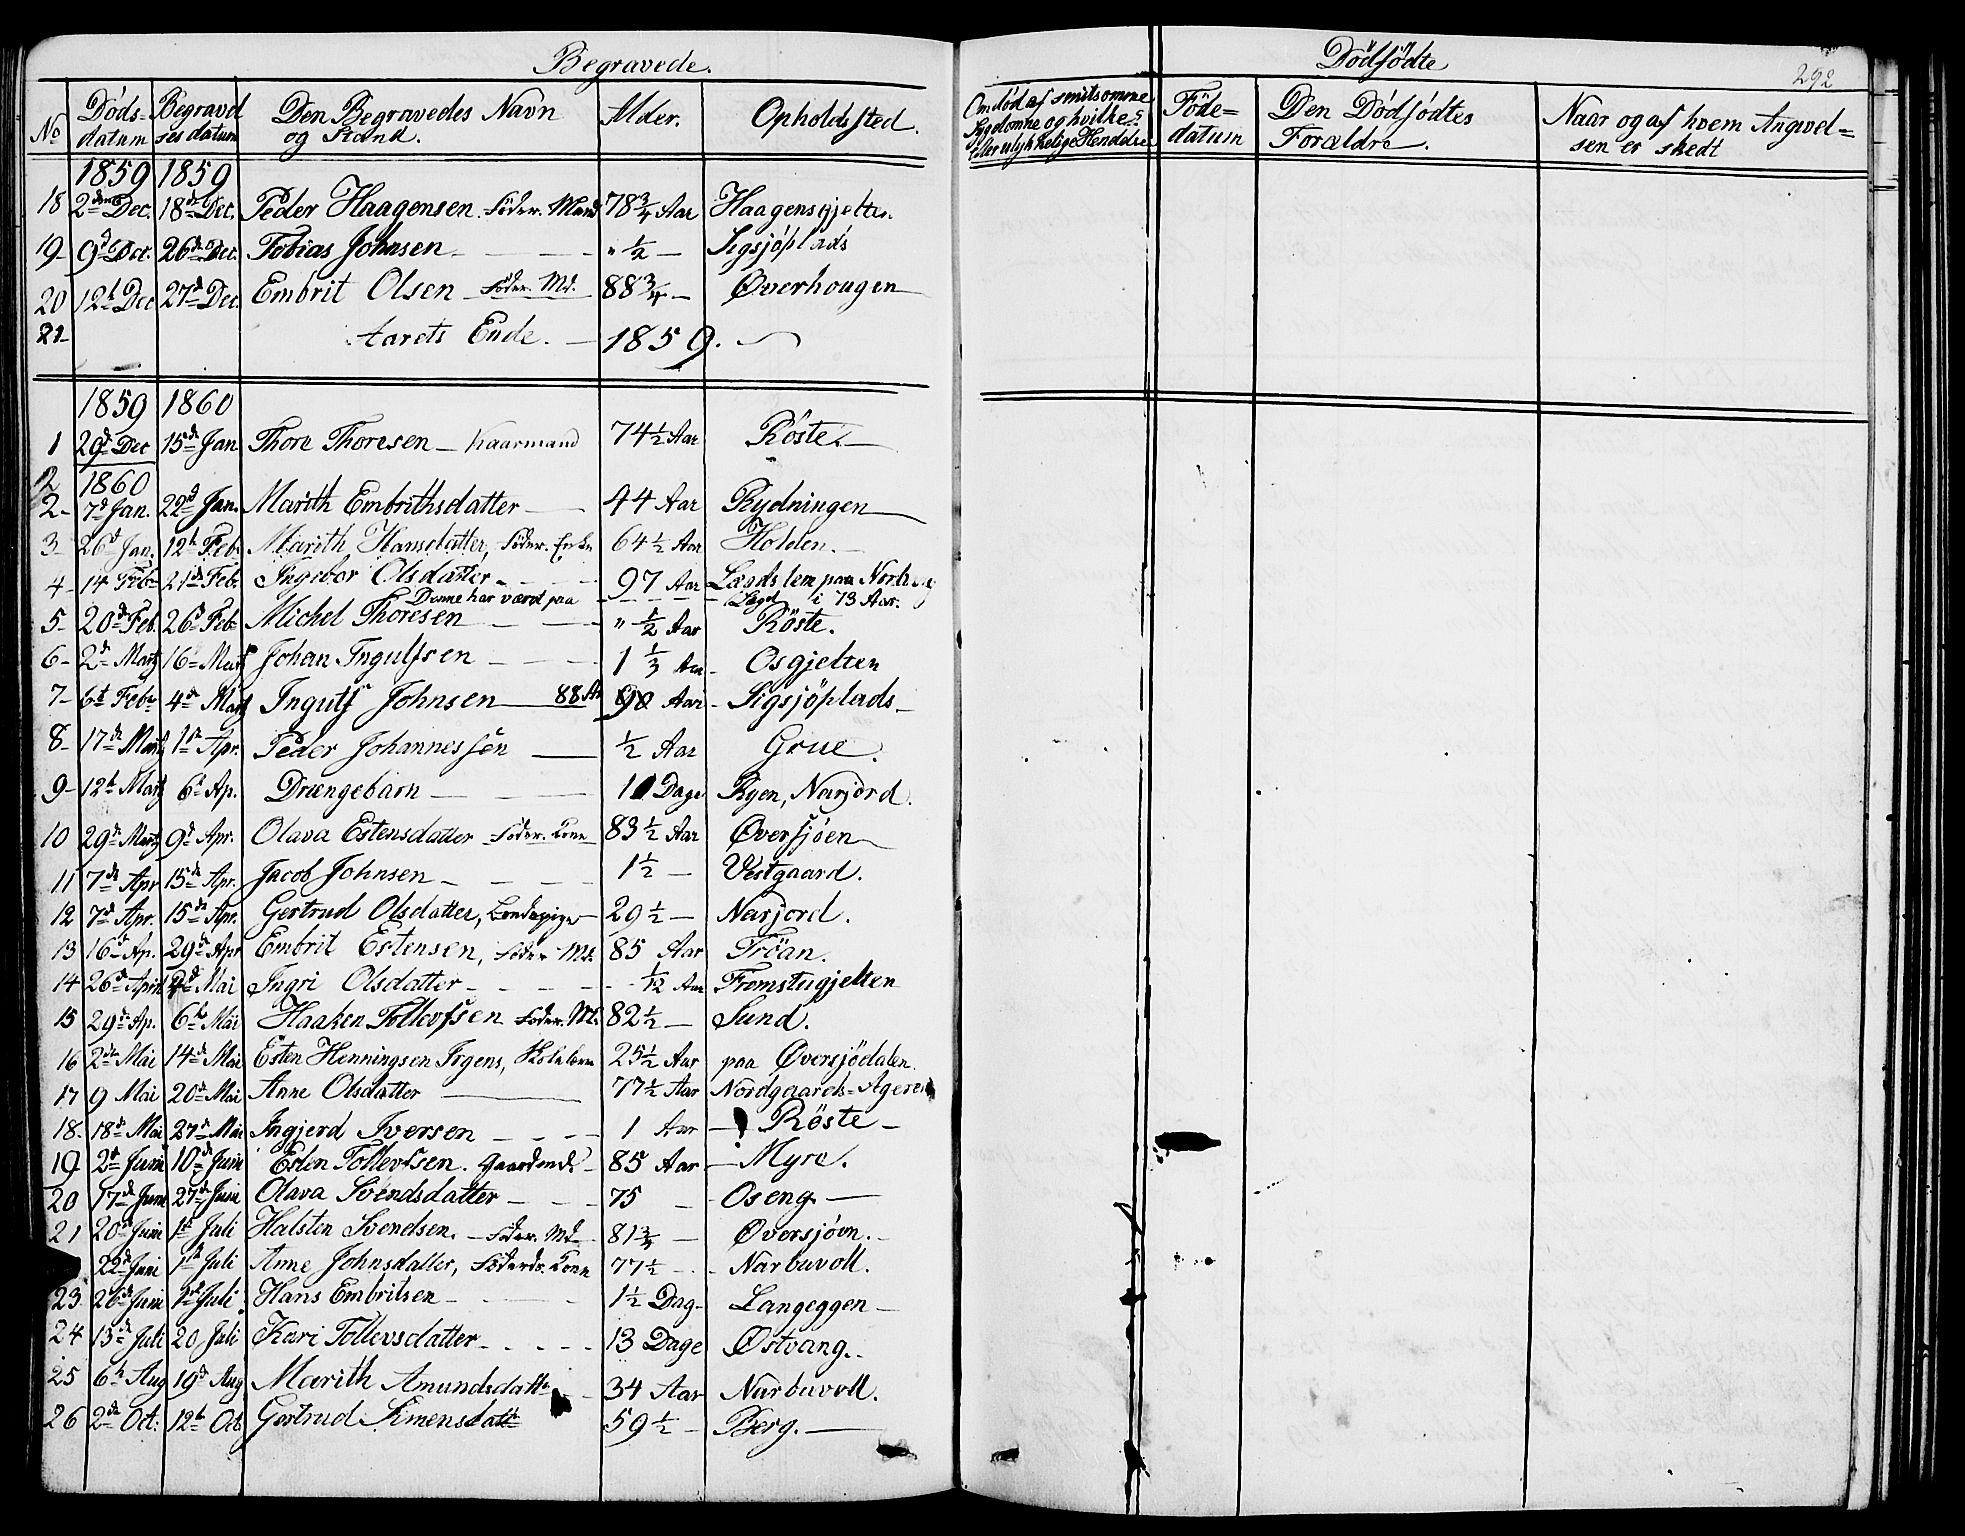 Begravede.
No Döds= datum Begravel ses datum Den Begravedes Navn og Stand. Alder. Opholdssted.
1859 1859
18 2den Dec. 18de Dec. Peder Haagensen. Föder. Mand 78 3/4 Aar Haagensgjelten.
19- 9d Dec. 26de Dec. Tobias Johnsen - " 1/2 - Sigsjöplads
20 12t Dec 27d Dec. Embrit Olsen Föder. Md. 88 3/4 - Øverhougen
21- Aarets Ende. - 1859.
1859 1860
1 29d Dec 15de Jan Thore Thoresen - Kaarmand 74 1/2 Aar Röste. -
2 1860
2- 7d Jan. 22d Jan. Marith Embrithsdatter 44 Aar Rydningen
3- 26d Jan. 12te Feb. Marith Hansdatter, Föder. Enke 64 1/2 Aar Holden. -
4- 14 Feb 21de Feb. Ingebor Olsdatter - 97 Aar Lægdslem paa
Denne harværd paa Lægd i 73 Aar.
5- 20d Feb. 26d Feb Michel Thoresen " 1/2 Aar Röste.
6- 2d Martz 16 Martz Johan Ingulfsen 1 1/3 Aar - Osgjelten
7- 6t Febr 4de Martz Ingulf Johnsen 88 Aar 90 Aar - Sigsjöplads -
8- 17de Martz 1st Apr. Peder Johannessen 1/2 Aar Grue.
9- 12t Martz 6t Ap. Drængebarn 10 Dage Ryen, Narjord.
10 29de Martz 9d Apr. Olava Estensdatter Föder. Kone 83 1/2 Aar Øversjöen
11 7de Apr 15de Apr. Jacob Johnsen - 1 1/2 - Vestgaard.
12 7d Apr. 15de Apr. Gertrud Olsdatter, Bondepige 29 1/2 - Narjord.
13 16d Ap. 29de Apr Embrit Estensen, Föder Md. 85 Aar Tröan.
14 26d April 2d Mai Ingri Olsdatter - 1/12 Aar Fromstugjelten
15 29de Ap. 6te Mai Haaken Tollevfsen Föder. Md. 82 1/2 - Sund.
16 2den Mai 14de Mai Esten Henningsen Irgens, 25 1/2 Aar paa Øversjödalen.
17 9 Mai 20de Mai Anne Olsdatter 77 1/2 Aar Nordgaards=Ageren
18. 18de Mai 27de Mai Ingjerd Iversen - 1 Aar - Röste -
19 2d Juni 10de Juni Esten Tollevfsen. Gaardmd. 85 Aar - Myre.
20 17de Juni 27de Juni Olava Svendsdatter - 75 - Oseng -
21 20d Juni 1ste Juli Halsten Svendsen. - Föder. Md. 81 3/4 - Øversjöen. -
22de Juni 1ste Juli Anne Johnsdatter, Föderds. Kone 77 1/2 - Narbuvoll.
23 26de Juni 1ste Juli Hans Embritsen - 1 1/2 Dag - Langeggen -
24 13de Juli 20 Juli Kari Tollevsdatter - 13 Dage Østvang. -
25 6te Aug 19d Aug Marith Amundsdatt 34 Aar Narbuvoll.
26 2de Oct. 12te Oct Gertrud Simensdatt 59 1/2 - Berg. -
Dödfödte
292
Om död af smitsomme Sygdomme og hvilke? eller ulykkelige Hendelse Föde= datum Den Dödfödtes Forældre. Naar og af hvem Angivel= sen er skedt